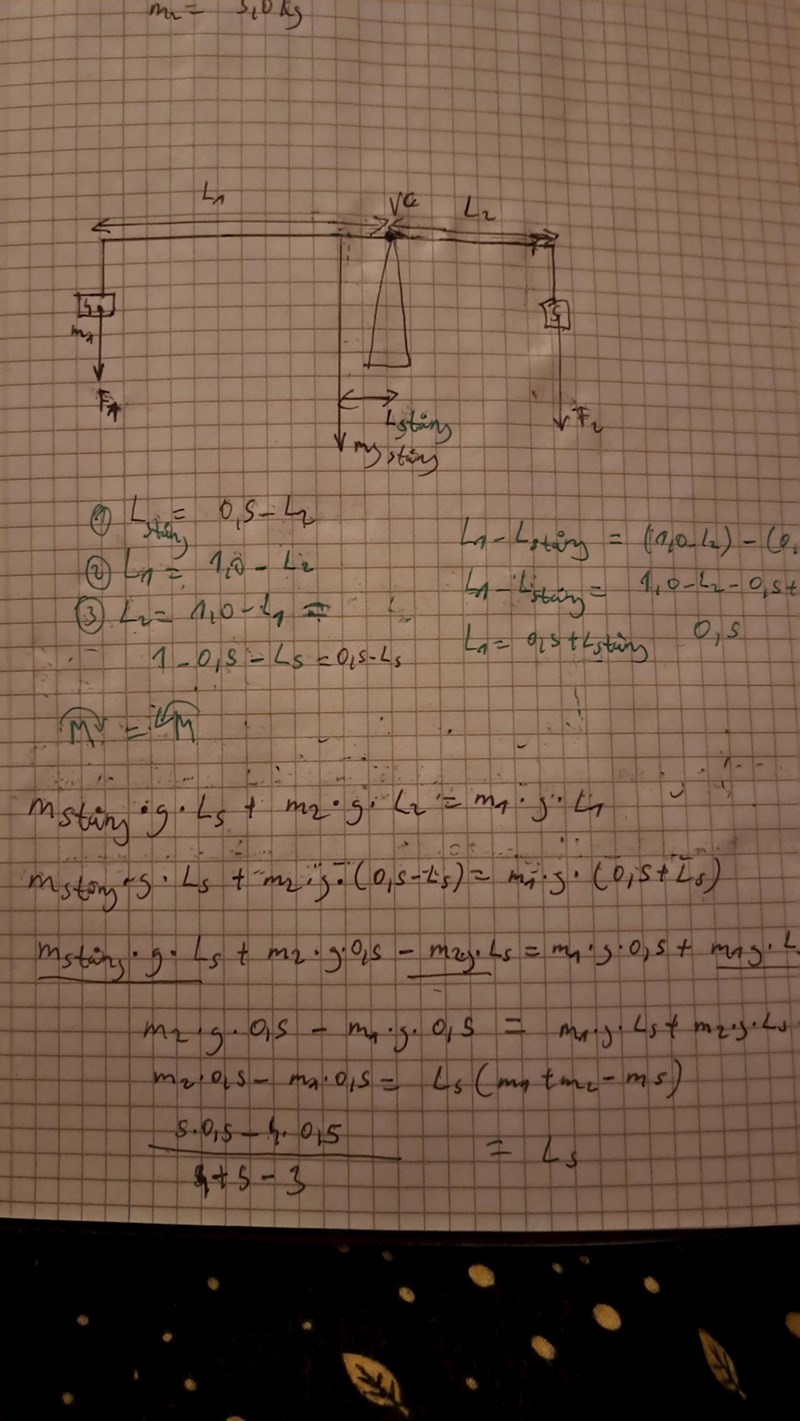 m₂ = 5,0 kg
L₁
L₂
m₁
F₁
F₂
L stång
mg stång
① L stång = 0,5 - L₂
② L₁ = 1,0 - L₂
③ L₂ = 1,0 - L₁ =
1 - 0,5 - Ls = 0,5 - Ls
L₁ - L stång = (1,0 - L₂) - (0,
L₁ - L stång = 1,0 - L₂ - 0,5 +
L₁ = 0,5 + L stång 0,5
M = M
m stång · g · Ls + m₂ · g · L₂ = m₁ · g · L₁
m stång · g · Ls + m₂ · g · (0,5 - Ls) = m₁ · g · (0,5 + Ls)
m stång · g · Ls + m₂ · g · 0,5 - m₂g · Ls = m₁ · g · 0,5 + m₁g · L
m₂ · g · 0,5 - m₁ · g · 0,5 = m₁ · g · Ls + m₂ · g · Ls
m₂ · 0,5 - m₁ · 0,5 = Ls (m₁ + m₂ - ms)
5 · 0,5 - 4 · 0,5
4 + 5 - 3
= Ls